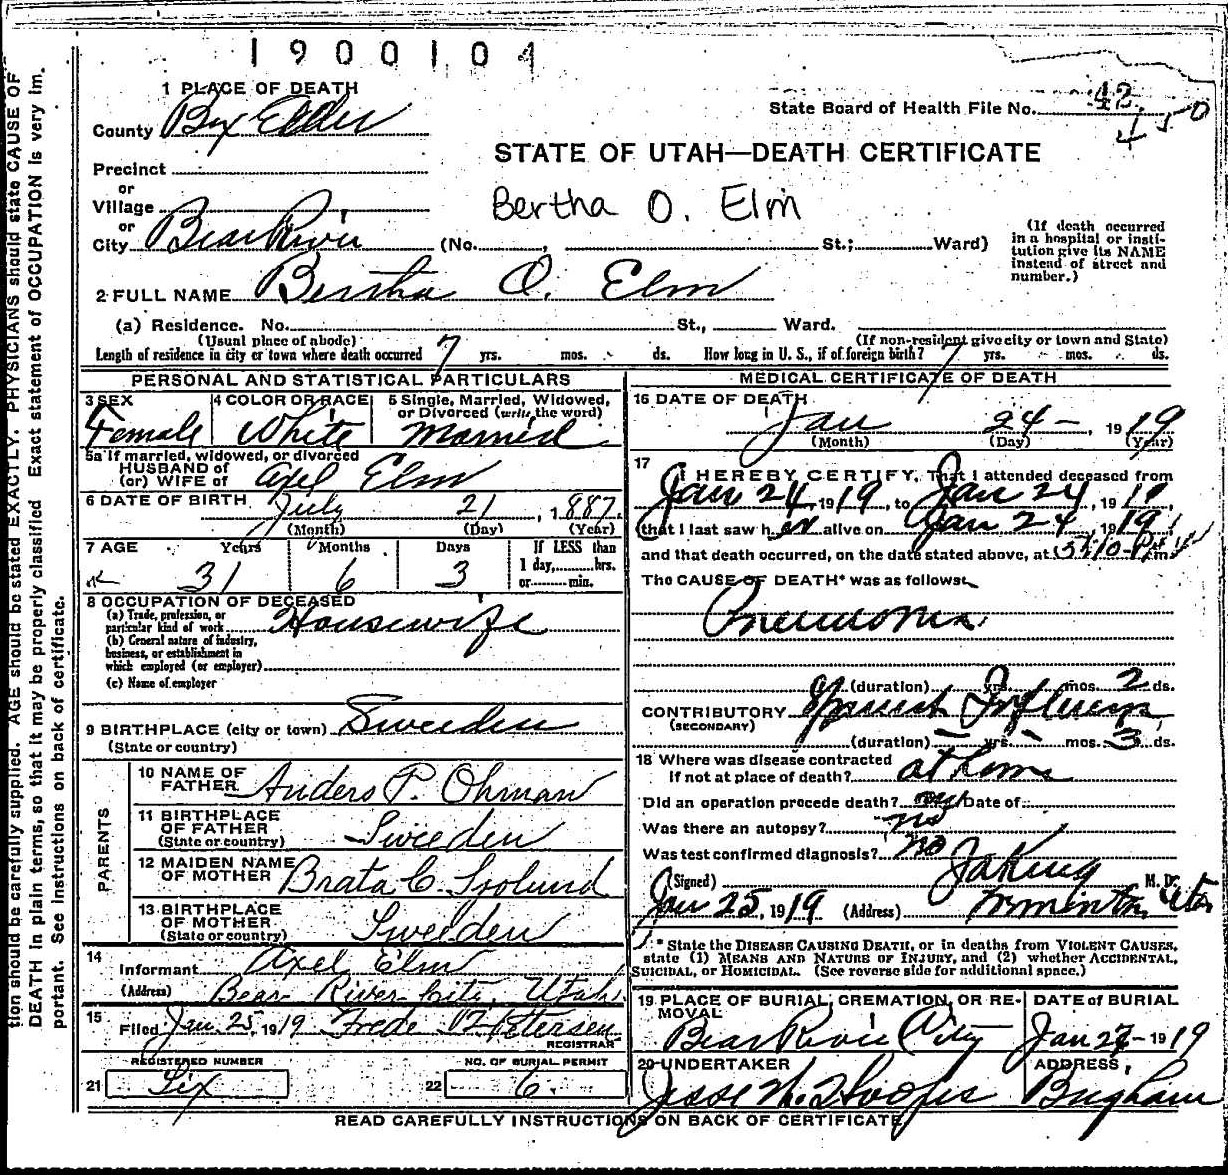 1900104
1 PLACE OF DEATH
State Board of Health File No. 42
450
County Box Elder
STATE OF UTAH—DEATH CERTIFICATE
Precinct
or
Village
Bertha O. Elm
or
City Bear River (No. , St.; Ward)
(If death occurred in a hospital or institution give its NAME instead of street and number.)
2 FULL NAME Bertha O. Elm
(a) Residence. No. St., Ward.
(Usual place of abode) (If non-resident give city or town and State)
Length of residence in city or town where death occurred 7 yrs. mos. ds. How long in U. S., if of foreign birth? 7 yrs. mos. ds.
PERSONAL AND STATISTICAL PARTICULARS
3 SEX Female
4 COLOR OR RACE White
5 Single, Married, Widowed, or Divorced (write the word) Married
5a If married, widowed, or divorced
HUSBAND of
(or) WIFE of Axel Elm
6 DATE OF BIRTH July 21, 1887
(Month) (Day) (Year)
7 AGE Years Months Days If LESS than
31 6 3 1 day, hrs.
or min.
8 OCCUPATION OF DECEASED
(a) Trade, profession, or particular kind of work Housewife
(b) General nature of industry, business, or establishment in which employed (or employer)
(c) Name of employer
9 BIRTHPLACE (city or town) Sweeden
(State or country)
PARENTS
10 NAME OF FATHER Anders P. Ohman
11 BIRTHPLACE OF FATHER
(State or country) Sweeden
12 MAIDEN NAME OF MOTHER Brata C.
13 BIRTHPLACE OF MOTHER
(State or country) Sweeden
14 Informant Axel Elm
(Address) Bear River City, Utah
15 Filed Jan. 25, 1919 Petersen
REGISTRAR
REGISTERED NUMBER
21 Six
NO. OF BURIAL PERMIT
22 6.
MEDICAL CERTIFICATE OF DEATH
16 DATE OF DEATH
Jan 24 — , 1919
(Month) (Day) (Year)
17 I HEREBY CERTIFY, That I attended deceased from
Jan 24, 1919, to Jan 24, 1919
that I last saw her alive on Jan 24, 1919
and that death occurred, on the date stated above, at 5:10 P.m
The CAUSE OF DEATH* was as follows:
Pneumonia
(duration) yrs. mos. 2 ds.
CONTRIBUTORY Spanish Influenza
(SECONDARY)
(duration) – yrs. – mos. 3 ds.
18 Where was disease contracted
if not at place of death? at home
Did an operation precede death? no Date of
Was there an autopsy? no
Was test confirmed diagnosis? no
(Signed) M. D.
Jan 25, 1919 (Address) Utah
* State the DISEASE CAUSING DEATH, or in deaths from VIOLENT CAUSES,
state (1) MEANS AND NATURE OF INJURY, and (2) whether ACCIDENTAL,
SUICIDAL, or HOMICIDAL. (See reverse side for additional space.)
19 PLACE OF BURIAL, CREMATION, OR REMOVAL
Bear River City
DATE of BURIAL
Jan 1919
20 UNDERTAKER
Jesse
ADDRESS
Brigham
READ CAREFULLY INSTRUCTIONS ON BACK OF CERTIFICATE
tion should be carefully supplied. AGE should be stated EXACTLY. PHYSICIANS should state CAUSE OF
DEATH in plain terms, so that it may be properly classified Exact statement of OCCUPATION is very im-
portant. See Instructions on back of certificate.